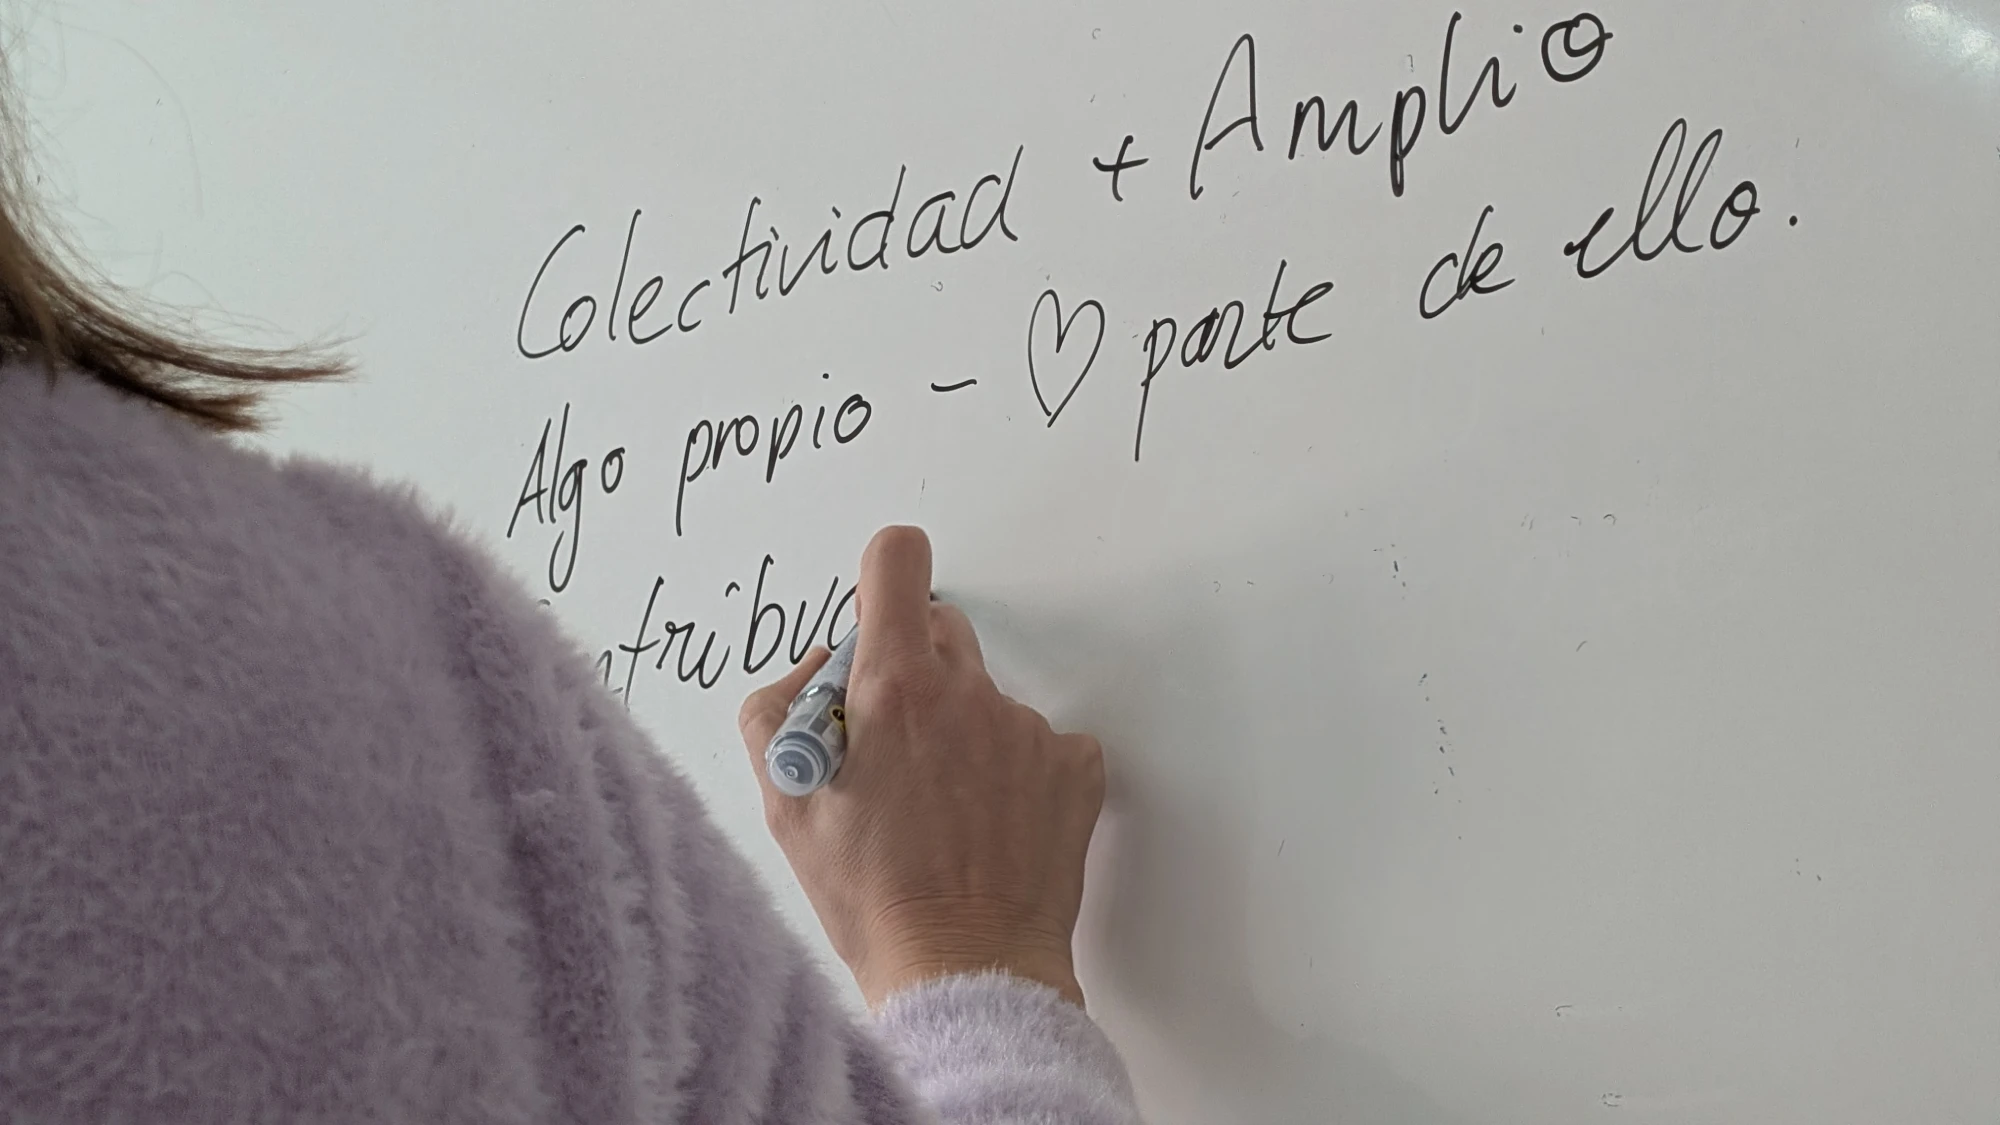 Colectividad + Amplio
Algo propio - ♡ parte de ello.